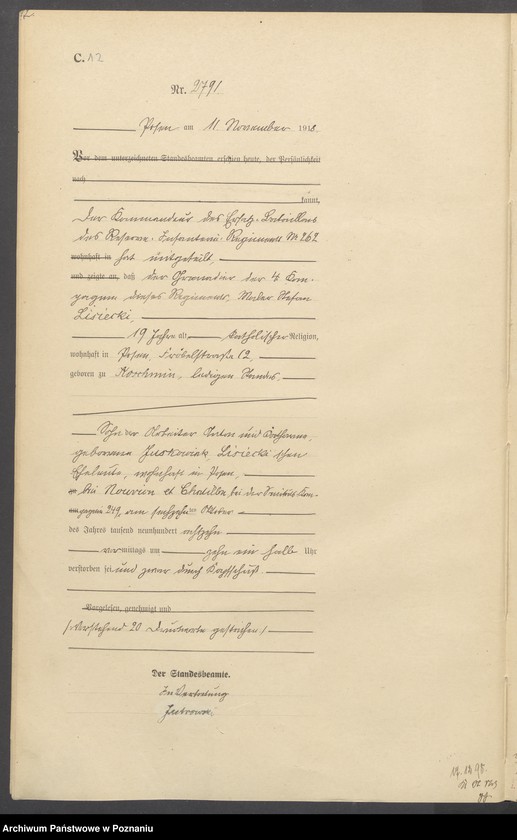 C. 12
Nr. 2791
Posen am 11 November 1918.
Vor dem unterzeichneten Standesbeamten erschien heute, der Persönlichkeit
nach
kannt,
Der Kommandeur des Ersatz-Bataillons
des Reserve-Infanterie-Regiments Nr 262
wohnhaft in hat mitgeteilt,
und zeigte an, daß der Grenadier der 4 Kom-
pagnie dieses Regiments, Maler Stefan
Lisiecki,
19 Jahre alt, katholischer Religion,
wohnhaft in Posen, Fröbelstraße 12,
geboren zu Koschmin, ledigen Standes,
Sohn der Arbeiter Anton und
geborenen Juskowiak, Lisiecki'schen
Eheleute, wohnhaft in Posen,
bei Nouvion et Catillon, bei der Sanitäts Kom-
pagnie 249, am sechzehnten Oktober
des Jahres tausend neunhundert achtzehn
vormittags um zehn ein halb Uhr
verstorben sei und zwar durch Kopfschuß.
Vorgelesen, genehmigt und
/Vorstehend 20 Druckworte gestrichen/
Der Standesbeamte.
In Vertretung
Archiwum Państwowe w Poznaniu